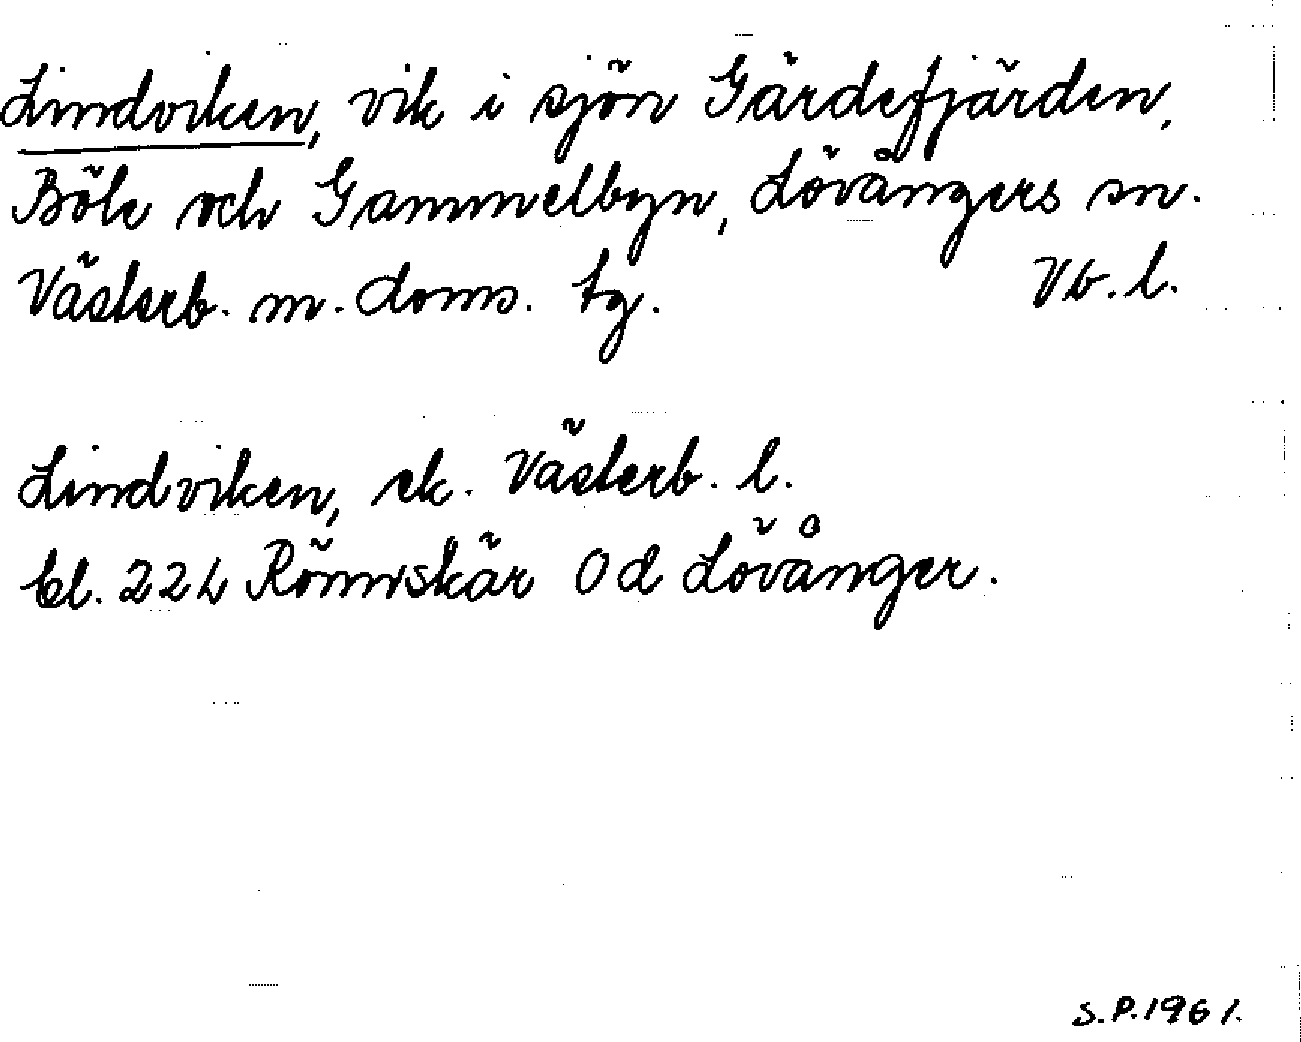 Lindviken, vik i sjön Gärdefjärden,
Böle och Gammelbyn, Lövångers sn.
Västerb. m. doms. tg. Vb. l.
Lindviken, ek. Västerb. l.
bl. 22L Rönnskär Od Lövånger.
S.P.1961.